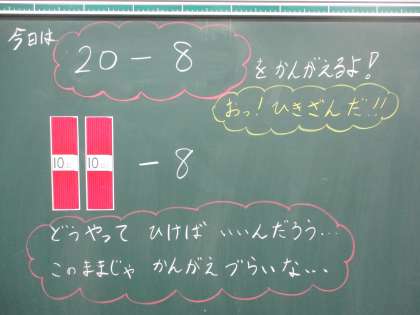 今日は 20-8 をかんがえるよ!
おっ!ひきざんだ!!!
10 10 -8
どうやって ひけば いいんだろう…
このままじゃ かんがえづらいな…